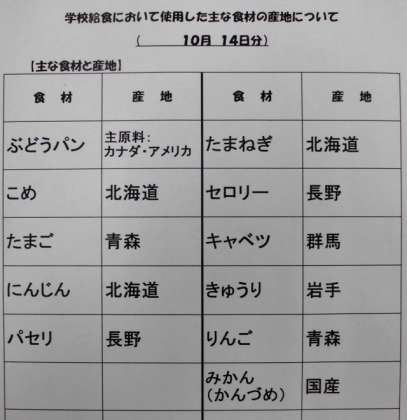 学校給食において使用した主な食材の産地について
( 10月 14日分)
【主な食材と産地】
食 材 産 地 食 材 産 地
ぶどうパン 主原料:カナダ・アメリカ たまねぎ 北海道
こめ 北海道 セロリー 長野
たまご 青森 キャベツ 群馬
にんじん 北海道 きゅうり 岩手
パセリ 長野 りんご 青森
みかん(かんづめ) 国産